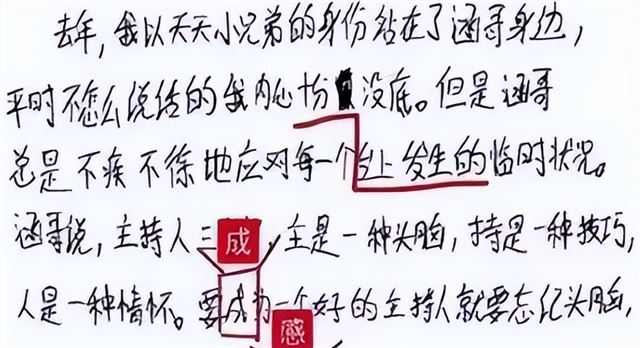 去年,我以天天小兄弟的身份站在了涵哥身边,
平时不怎么说话的我内心十分没底。但是涵哥
总是不疾不徐地应对每一个台上发生的临时状况。
涵哥说,主持人三 成 ,主是一种头脑,持是一种技巧,
人是一种情怀。要成为一个好的主持人就要忘记头脑,
感